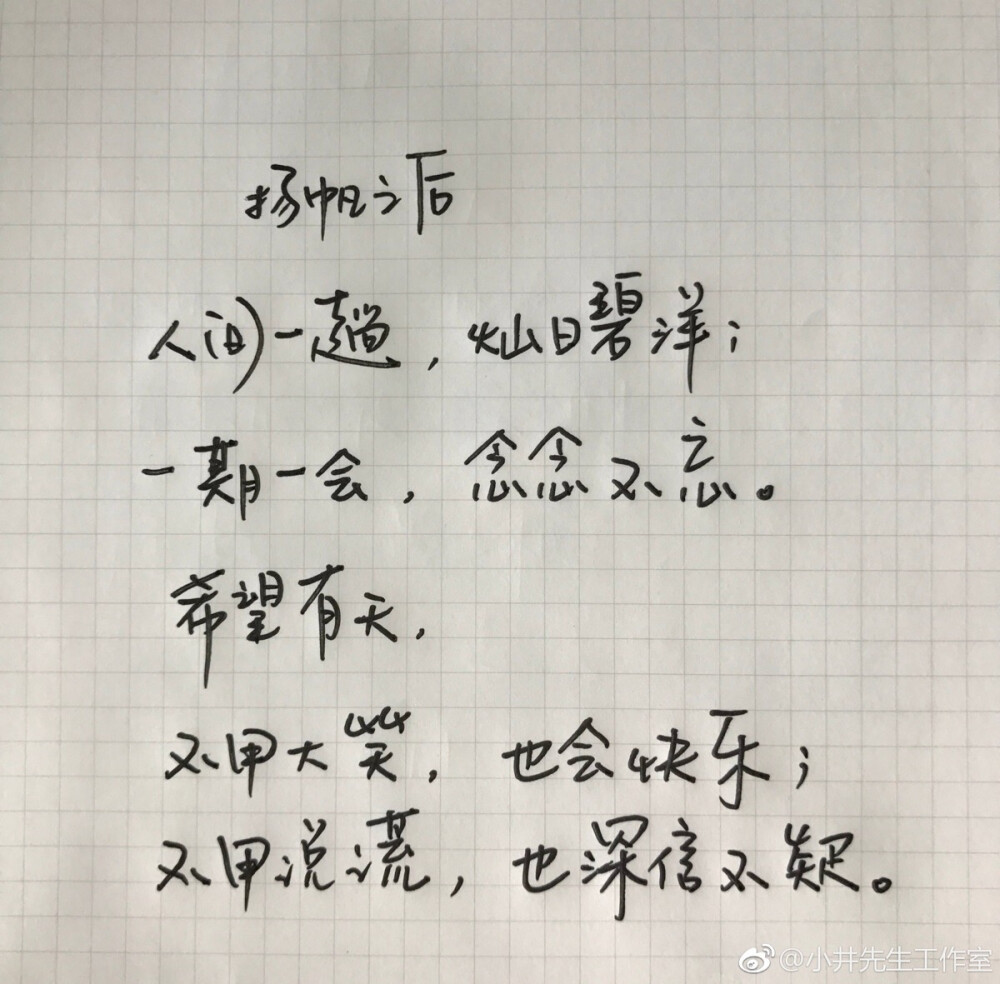 扬帆之后
人间一趟，灿日碧洋；
一期一会，念念不忘。
希望有天，
不用大笑，也会快乐；
不用说谎，也深信不疑。
@小井先生工作室